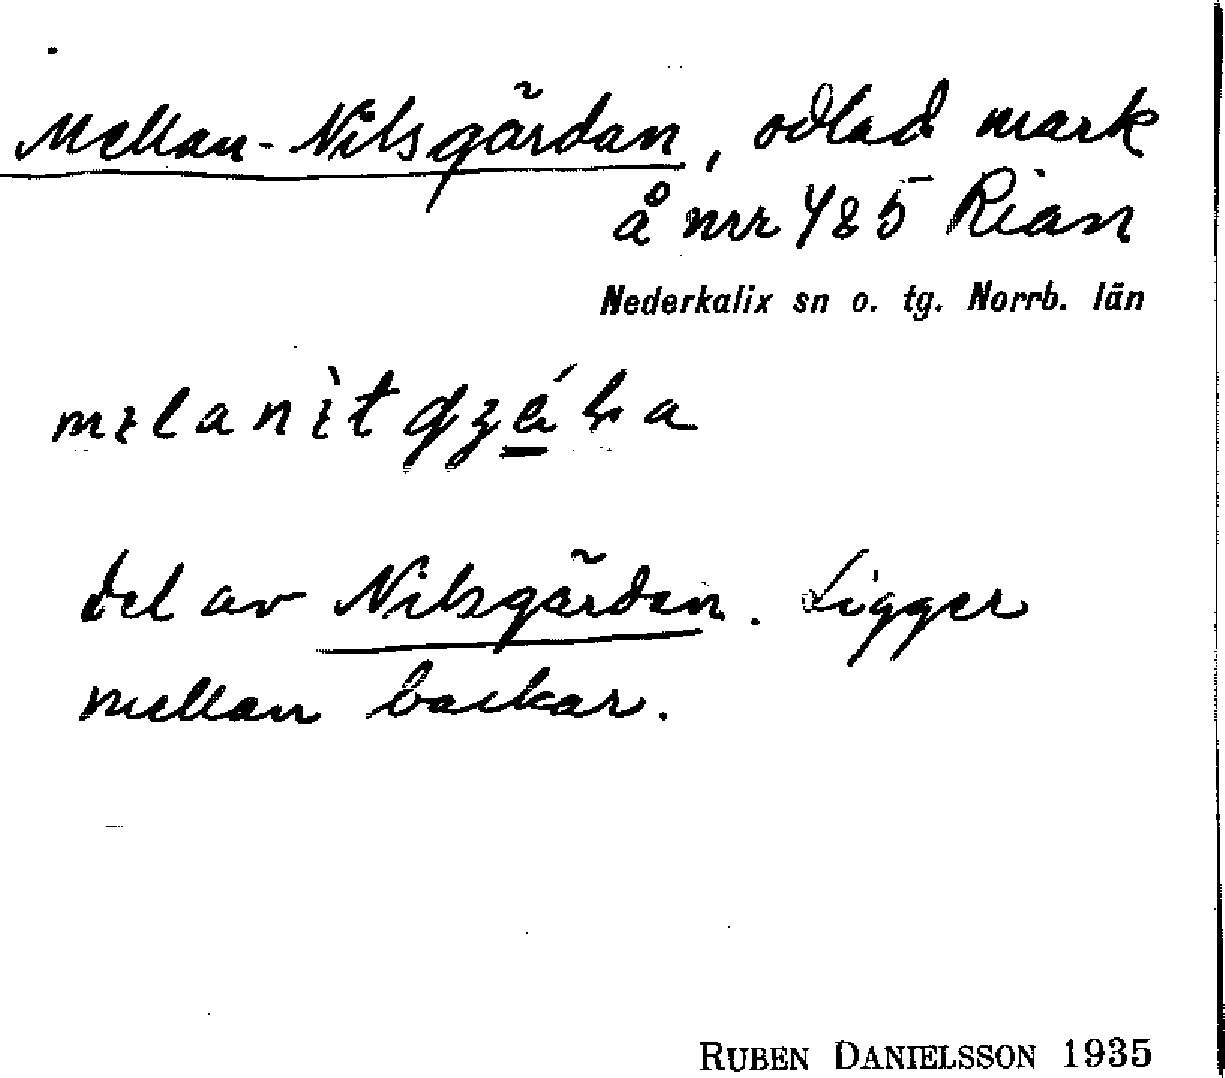 Mellan-Nilsgärdan, odlad mark
å nrr 4 & 5 Rian
Nederkalix sn o. tg. Norrb. län
del av Nilsgärdan. Ligger
mellan backar.
RUBEN DANIELSSON 1935